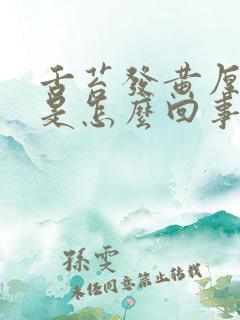 舌苔發黃厚
是怎麼回事
孫雯
未经同意禁止转载